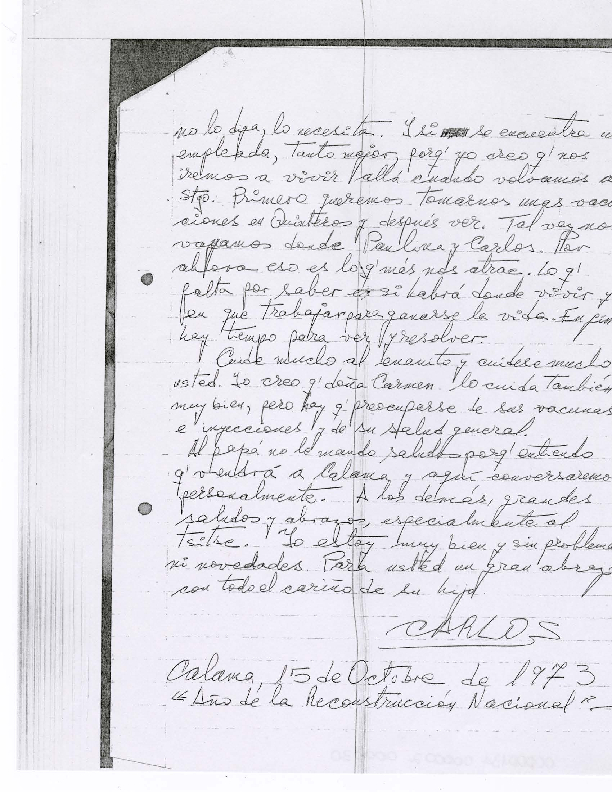 no lo diga, lo necesita. Y si se encuentra
empleada, tanto mejor, porq' yo creo q' nos
iremos a vivir allá cuando volvamos a
Stgo. Primero queremos tomarnos unas vaca
ciones en Quinteros y después ver. Tal vez nos
vayamos donde Paulina y Carlos. Por
ahora eso es lo q' más nos atrae. Lo q'
falta por saber es si habrá donde vivir y
en que trabajar para ganarse la vida. En fin
hay tiempo para ver y resolver.
Cuide mucho al enanito y cuídese mucho
usted. Yo creo q' doña Carmen lo cuida también
muy bien, pero hay q' preocuparse de sus vacunas
e inyecciones y de su salud general.
Al papá no le mando saludos porq' entiendo
q' vendrá a Calama y aquí conversaremos
personalmente. A los demás, grandes
saludos y abrazos, especialmente al
Yo estoy muy bien y sin problemas
ni novedades. Para usted un gran abrazo
con todo el cariño de su hijo
CARLOS
Calama, 15 de Octubre de 1973
"Año de la Reconstrucción Nacional".-